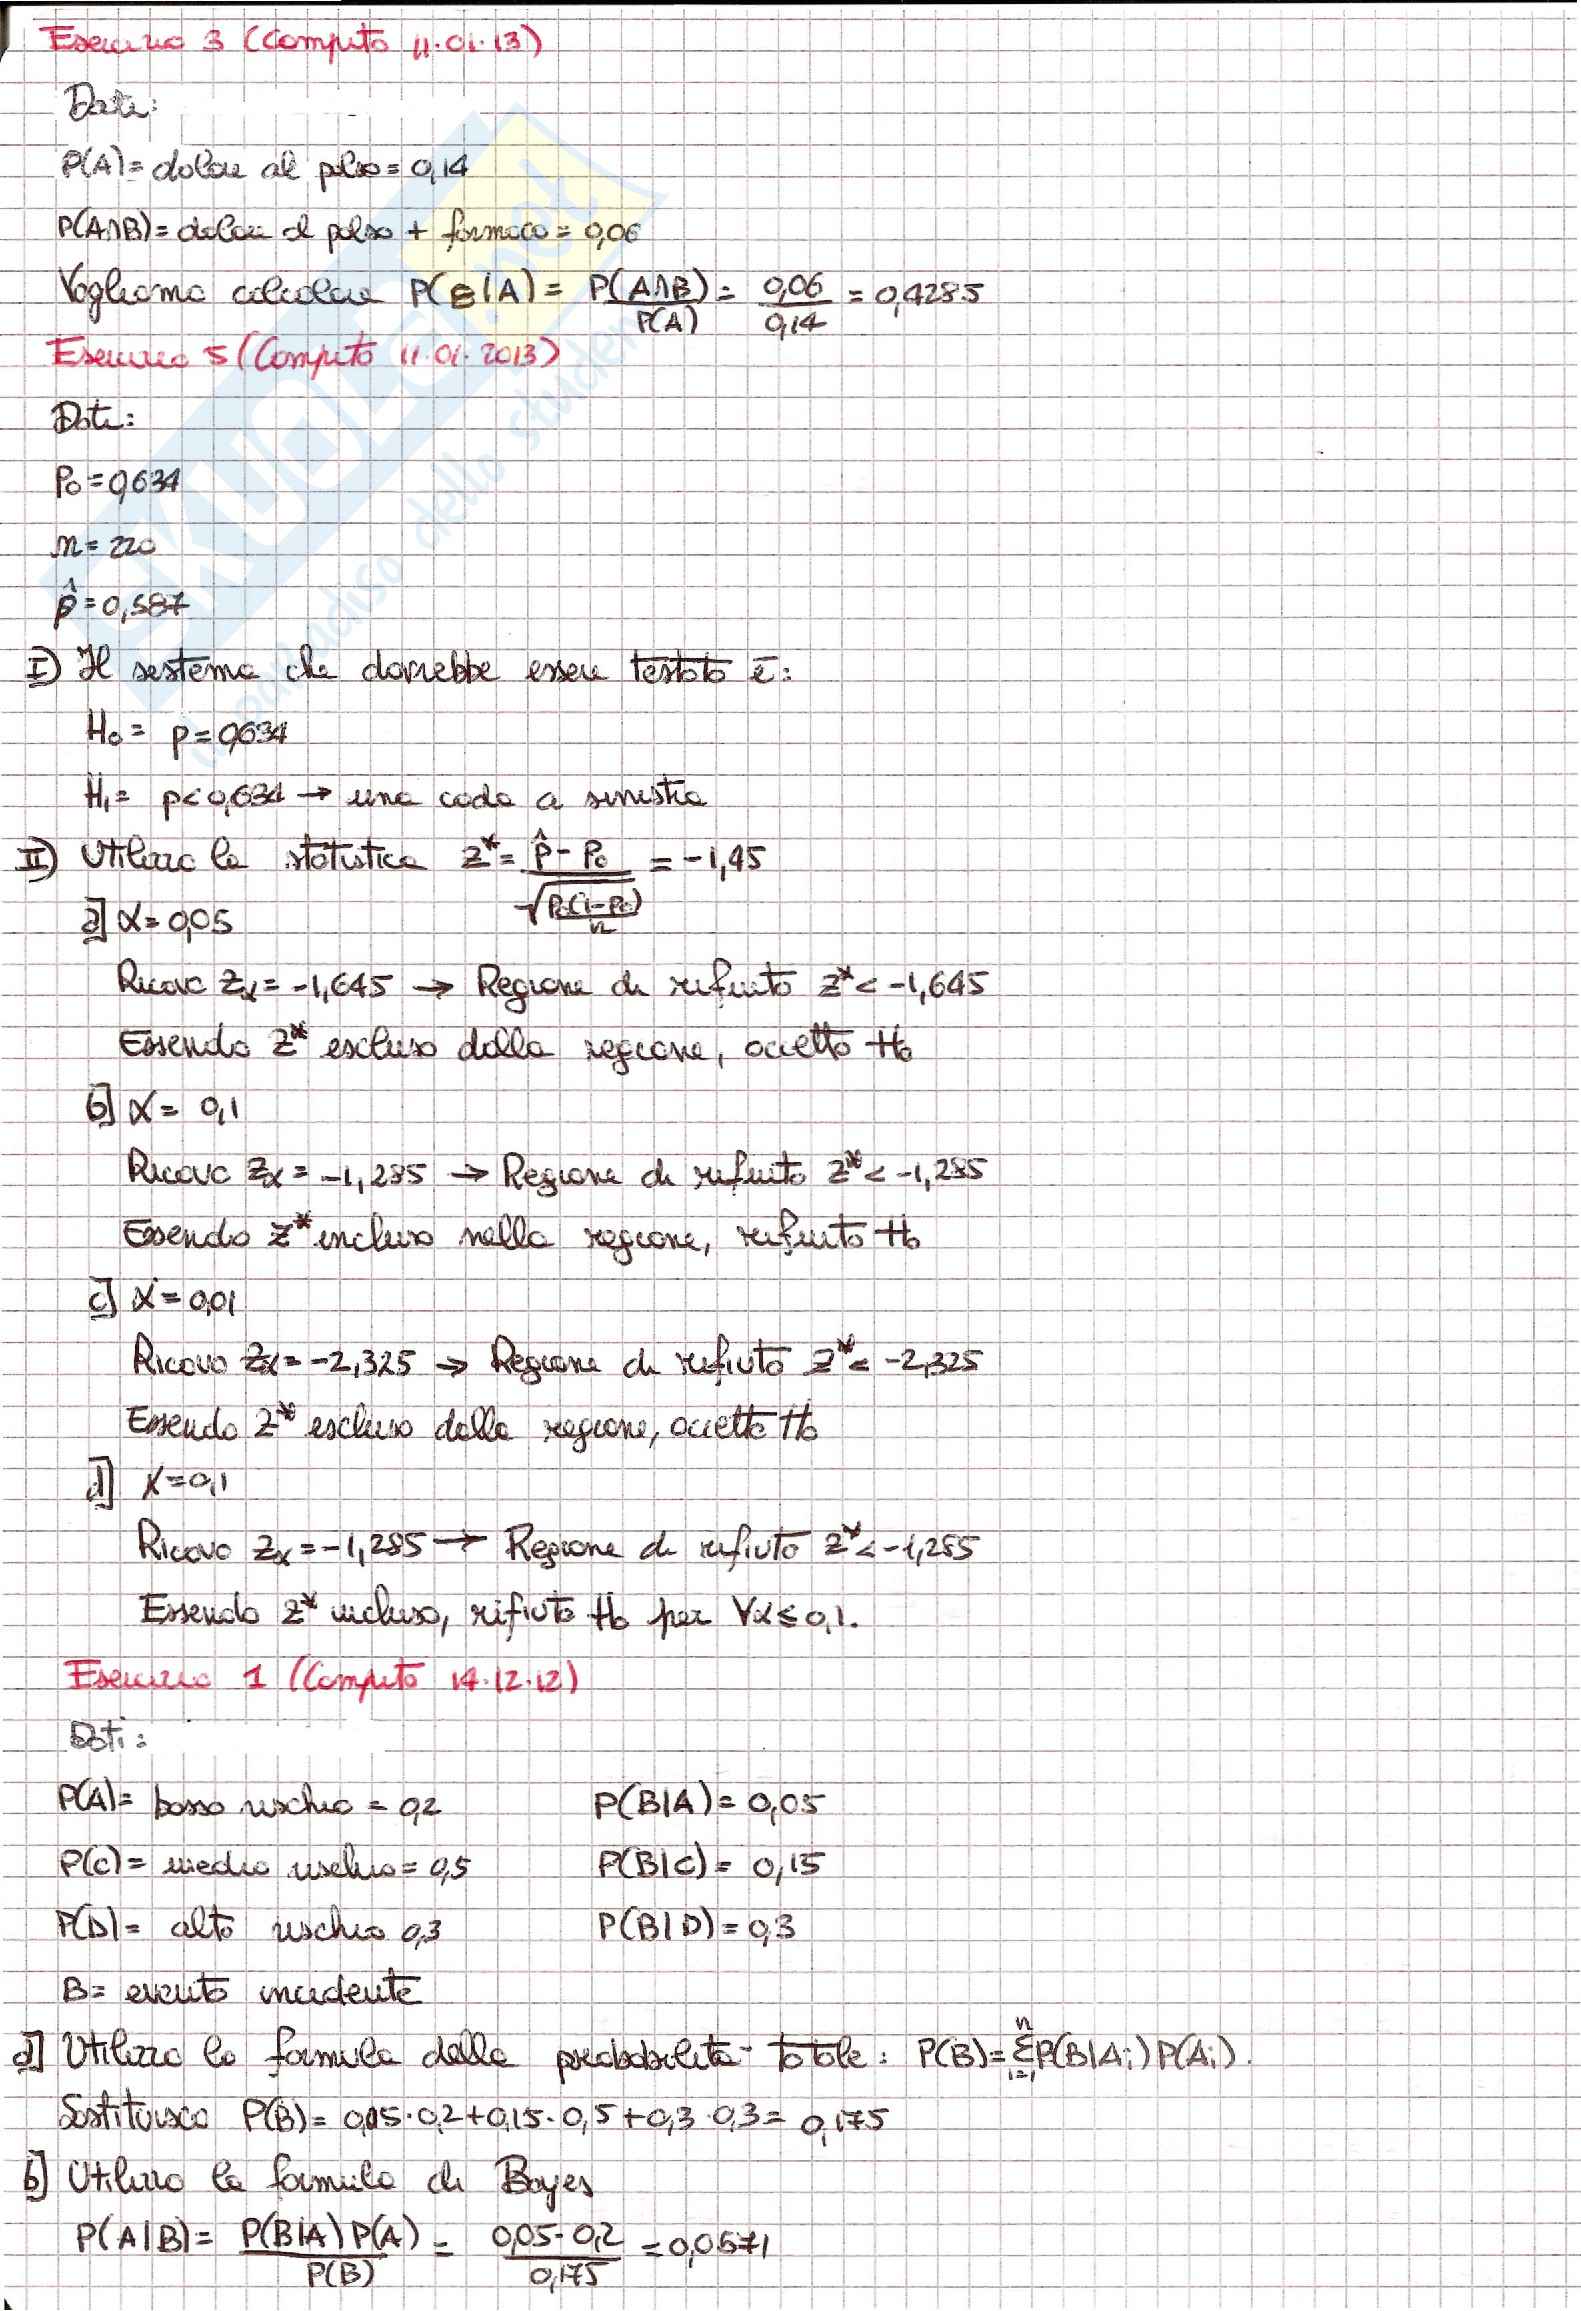 Esercizio 3 (Compito 11.01.13)
Dati:
P(A)= dolore al polso = 0,14
P(A∩B)= dolore al polso + farmaco = 0,06
Vogliamo calcolare P(B|A) = P(A∩B)/P(A) = 0,06/0,14 = 0,4285
Esercizio 5 (Compito 11.01.2013)
Dati:
P₀ = 0,634
n = 220
p̂ = 0,587
I) Il sistema che dovrebbe essere testato è:
H₀ = p = 0,634
H₁ = p < 0,634 → una coda a sinistra
II) Utilizzo la statistica Z* = (p̂ - P₀)/√(P₀(1-P₀)/n) = -1,45
a] α = 0,05
Ricavo Zα = -1,645 → Regione di rifiuto Z* < -1,645
Essendo Z* escluso dalla regione, accetto H₀
b] α = 0,1
Ricavo Zα = -1,285 → Regione di rifiuto Z* < -1,285
Essendo Z* incluso nella regione, rifiuto H₀
c] α = 0,01
Ricavo Zα = -2,325 → Regione di rifiuto Z* < -2,325
Essendo Z* escluso dalla regione, accetto H₀
d] α = 0,1
Ricavo Zα = -1,285 → Regione di rifiuto Z* < -1,285
Essendo Z* incluso, rifiuto H₀ per ∀α ≤ 0,1.
Esercizio 1 (Compito 14.12.12)
Dati:
P(A)= basso rischio = 0,2 P(B|A) = 0,05
P(C)= medio rischio = 0,5 P(B|C) = 0,15
P(D)= alto rischio 0,3 P(B|D) = 0,3
B = evento incidente
a] Utilizzo la formula della probabilità totale: P(B) = Σⁿᵢ₌₁ P(B|Aᵢ) P(Aᵢ).
Sostituisco P(B) = 0,05·0,2 + 0,15·0,5 + 0,3·0,3 = 0,175
b] Utilizzo la formula di Bayes
P(A|B) = P(B|A) P(A)/P(B) = 0,05·0,2/0,175 = 0,0571
SKUOLA.net
il paradiso dello studente